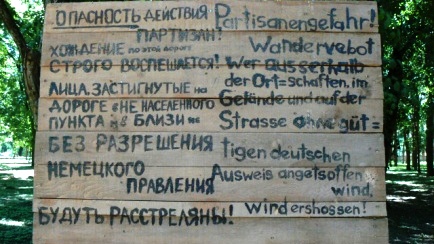 ОПАСНОСТЬ ДЕЙСТВИЯ
ПАРТИЗАН!
ХОЖДЕНИЕ по этой дороге
СТРОГО ВОСПЕЩАЕТСЯ!
ЛИЦА, ЗАСТИГНУТЫЕ на
ДОРОГЕ в НЕ НАСЕЛЕННОГО
ПУНКТА в БЛИЗИ
БЕЗ РАЗРЕШЕНИЯ
НЕМЕЦКОГО
ПРАВЛЕНИЯ
БУДУТЬ РАССТРЕЛЯНЫ!
Partisanengefahr!
Wandervebot
Wer ausserhalb
der Ort=schaften, im
Gelände und auf der
Strasse ohne güt=
tigen deutschen
Ausweis angetsoffen
wind,
wird ershossen!